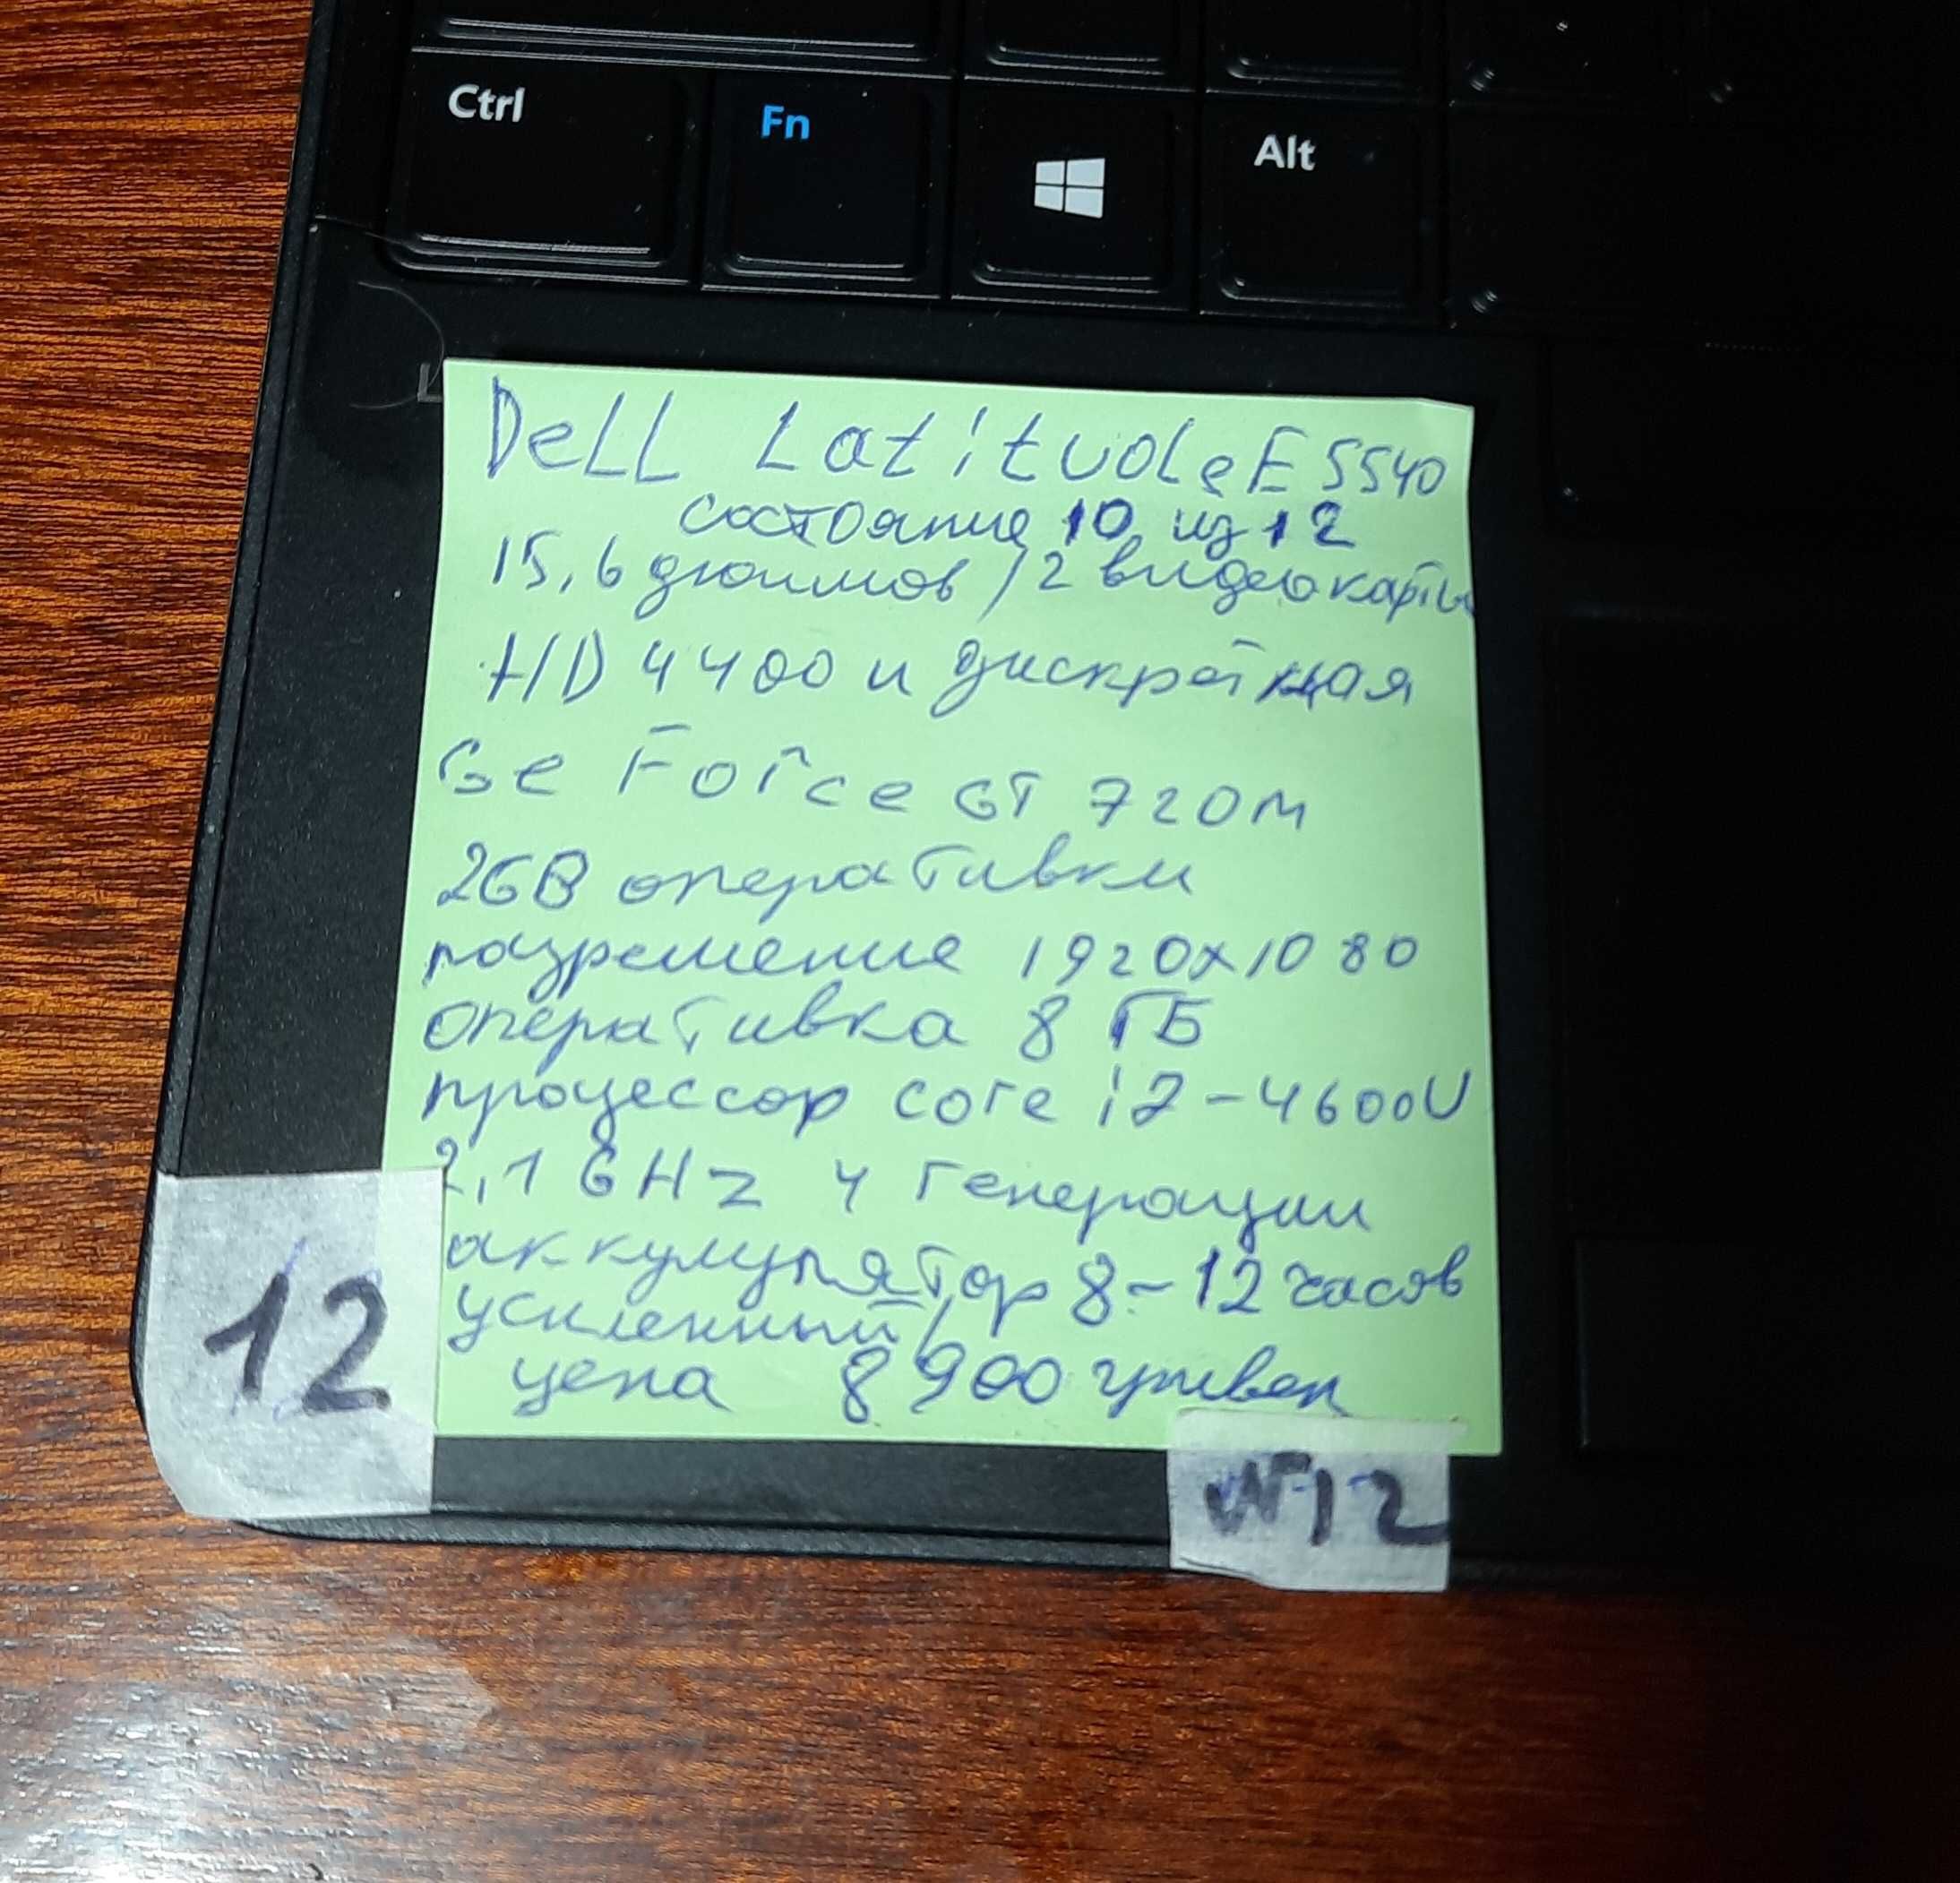 Ctrl
Fn
Alt
Dell Latitude E5540
состояние 10 из 12
15,6 дюймов / 2 видеокарты
HD 4400 и дискретная
Ge Force GT 720M
2GB оперативки
разрешение 1920x1080
оперативка 8 ГБ
процессор core i7-4600U
2,1 GHz 4 генерации
аккумулятор 8-12 часов
усиленный /
цена 8900 гривен
12
№12